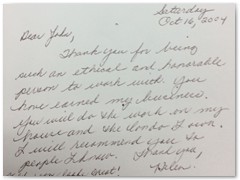 Saturday
Oct 16, 2004
Dear John,
Thank you for being
such an ethical and honorable
person to work with. You
have earned my business.
You will do the work on my
house and the condo I own.
I will recommend you to
people I know. Thank you,
Helen